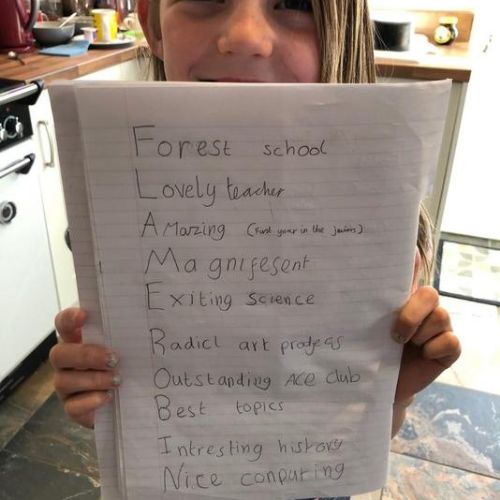 Forest school
Lovely teacher
AMazing (First year in the juniors)
Magnifesent
Exiting science
Radicl art projects
Outstanding ACE club
Best topics
Intresting history
Nice conputing